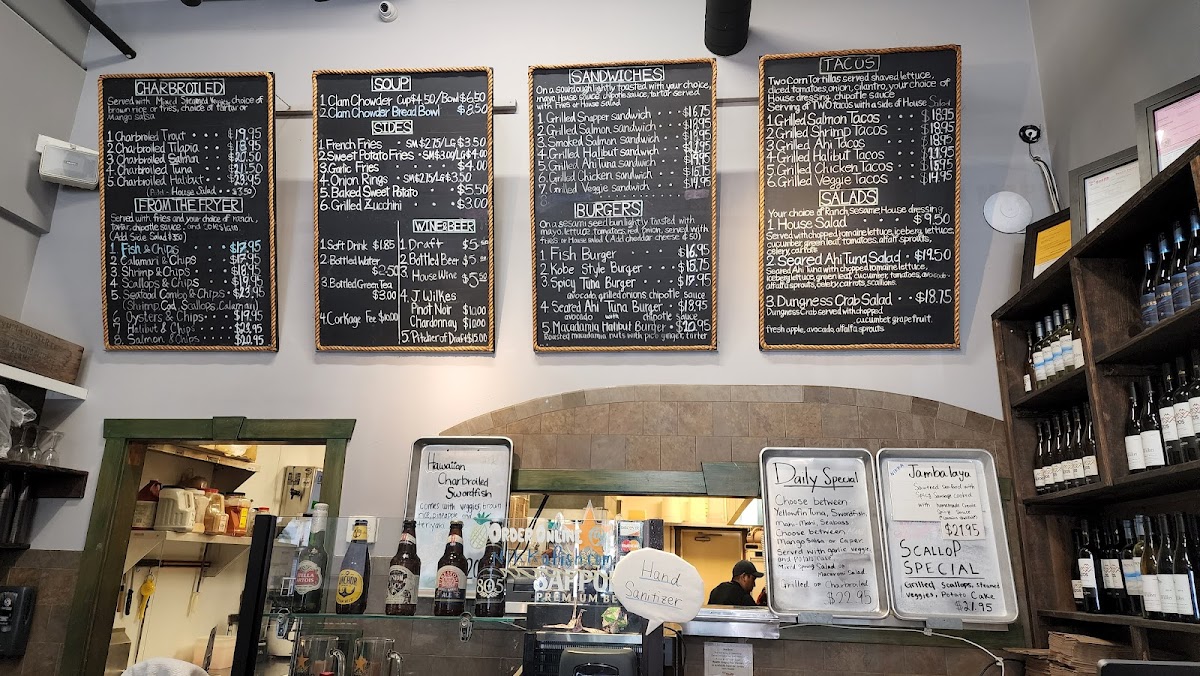 CHARBROILED
Served with Mixed Steamed Veggies, choice of
brown rice or fries, choice of tartar or
Mango salsa
1. Charbroiled Trout $19.95
2. Charbroiled Tilapia
3. Charbroiled Salmon $20.50
4. Charbroiled Tuna
5. Charbroiled Halibut
House Salad $3.50
FROM THE FRYER
Served with fries and your choice of ranch,
tartar, chipotle sauce, and coleslaw
(Add Side Salad $3.50)
1. Fish & Chips $17.95
2. Calamari & Chips $17.95
3. Shrimp & Chips
4. Scallops & Chips $19.95
5. Seafood Combo & Chips $23.95
(Shrimp, Cod, Scallops, Calamari)
6. Oysters & Chips $19.95
7. Halibut & Chips
8. Salmon & Chips $20.95
SOUP
1. Clam Chowder Cup $4.50/Bowl $6.50
2. Clam Chowder Bread Bowl $8.50
SIDES
1. French Fries SM $2.75/LG $3.50
2. Sweet Potato Fries SM $3.00/LG $4.00
3. Garlic Fries $4.00
4. Onion Rings SM $2.75/LG $3.50
5. Baked Sweet Potato $5.50
6. Grilled Zucchini $3.00
1. Soft Drink $1.85
2. Bottled Water
$2.50
3. Bottled Green Tea
$3.00
4. Corkage Fee $10.00
WINE & BEER
1. Draft $5.50
2. Bottled Beer $5.50
3. House Wine $5.50
4. J Wilkes
Pinot Noir $11.00
Chardonnay $10.00
5. Pitcher of Draft $15.00
SANDWICHES
On a sourdough lightly toasted with your choice,
mayo, House sauce, chipotle sauce, tartar served
with Fries or House Salad
1. Grilled Snapper sandwich $16.75
2. Grilled Salmon sandwich $18.95
3. Smoked Salmon sandwich
4. Grilled Halibut sandwich
5. Grilled Ahi Tuna sandwich
6. Grilled Chicken sandwich $16.75
Grilled Veggie sandwich $14.95
BURGERS
On a sesame seed bun lightly toasted with
mayo, lettuce, tomatoes, red onion, served with
fries or House Salad (Add cheddar cheese $.50)
1. Fish Burger $16.95
2. Kobe Style Burger $18.75
3. Spicy Tuna Burger $17.95
avocado, grilled onions chipotle sauce
4. Seared Ahi Tuna Burger $18.95
avocado with chipotle sauce
5. Macadamia Halibut Burger $20.95
Roasted macadamia nuts with ginger, tarter
TACOS
Two Corn Tortillas served shaved lettuce,
diced tomatoes, onion, cilantro, your choice of
House dressing, chipotle sauce
Serving of TWO tacos with a side of House Salad
1. Grilled Salmon Tacos $18.75
2. Grilled Shrimp Tacos $18.95
3. Grilled Ahi Tacos $18.95
4. Grilled Halibut Tacos
5. Grilled Chicken Tacos
6. Grilled Veggie Tacos $14.95
SALADS
Your choice of Ranch, Sesame, House dressing
1. House Salad $9.50
Served with chopped romaine lettuce, iceberg lettuce,
cucumber, green leaf, tomatoes, alfalfa sprouts,
celery, carrots
2. Seared Ahi Tuna Salad $19.50
Seared Ahi Tuna with chopped romaine lettuce,
iceberg lettuce, green leaf, cucumber, tomatoes, avocado
alfalfa sprouts, celery, carrots, scallions.
3. Dungness Crab Salad $18.75
Dungness Crab served with chopped
cucumber, grapefruit
fresh apple, avocado, alfalfa sprouts
Hawaiian
Charbroiled
Swordfish
comes with veggies, brown
rice, pineapple and
teriyaki
ORDER ONLINE
SAPPORO
PREMIUM BEER
STELLA ARTOIS
ANCHOR
805
Hand
Sanitizer
Daily Special
Choose between
Yellowfin Tuna, Swordfish,
Mahi-Mahi, Seabass
Choose between:
Mango Salsa or Caper
Served with garlic veggie
and potato cake
Mixed Spring Salad or
Macaroni Salad
Grilled or Charbroiled
$22.95
Jambalaya
Sauteed seafood with
Spicy Sausage Cooked
with homemade Creole
Spicy Sauce
$21.95
SCALLOP
SPECIAL
Grilled scallops, steamed
veggies, Potato Cake
$21.95